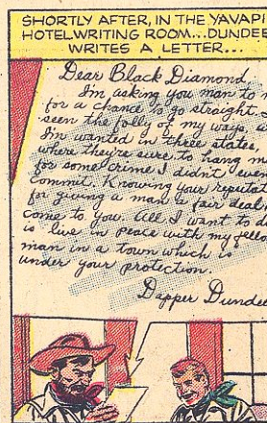 SHORTLY AFTER, IN THE YAVAPI
HOTEL WRITING ROOM...DUNDEE
WRITES A LETTER...
Dear Black Diamond,
I'm asking you man to
for a chance to go straight.
seen the folly of my ways,
I'm wanted in three states,
where they're sure to hang
for some crime I didn't even
commit. Knowing your reputat
for giving a man a fair deal
come to you. All I want to d
is live in peace with my fello
man in a town which is
under your protection.
Dapper Dundee